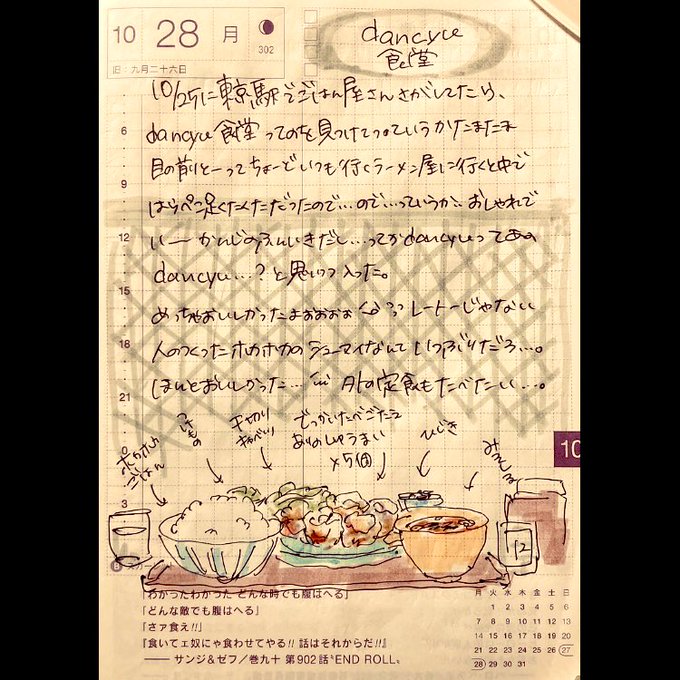 10 28 月
302
旧:九月二十六日
dancyu
食堂
10/25に東京駅でごはん屋さんさがしてたら、
dancyu食堂ってのを見つけてっていうかたまたま
目の前にとーってちょーどいつも行くラーメン屋に行くと中で
はらぺこ足くたくただったので…ので…っていうか、おしゃれで
いーかんじのふんいきだし…ってかdancyuってあの
dancyu…?と思いつつ入った。
めっちゃおいしかったまぁおぉぉぉ レートーじゃない
人のつくったホカホカのシューマイなんていつぶりだろ…。
ほんとおいしかった… 他の定食もたべたい…。
6
9
12
15
18
21
3
ホカホカ
ごはん
つけもの
千切り
キャベツ
でっかいたべごたえ
ありのしゅうまい
×5個
ひじき
みそしる
10
12
「わかったわかった どんな時でも腹はへる」
「どんな敵でも腹はへる」
「さァ食え!!」
『食いてェ奴にゃ食わせてやる!! 話はそれからだ!!』
―― サンジ&ゼフ/巻九十 第902話“END ROLL„
月 火 水 木 金 土 日
1 2 3 4 5 6
7 8 9 10 11 12 13
14 15 16 17 18 19 20
21 22 23 24 25 26 27
28 29 30 31